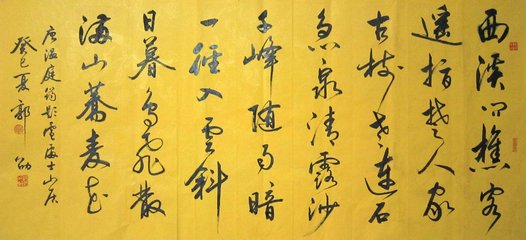 西溪问樵客
遥指楚人家
古树老連石
急泉清露沙
千峰随雨暗
一徑入雲斜
日暮鸟飛散
满山蕎麦花
唐温庭筠题盧處士山居
癸巳夏 郭